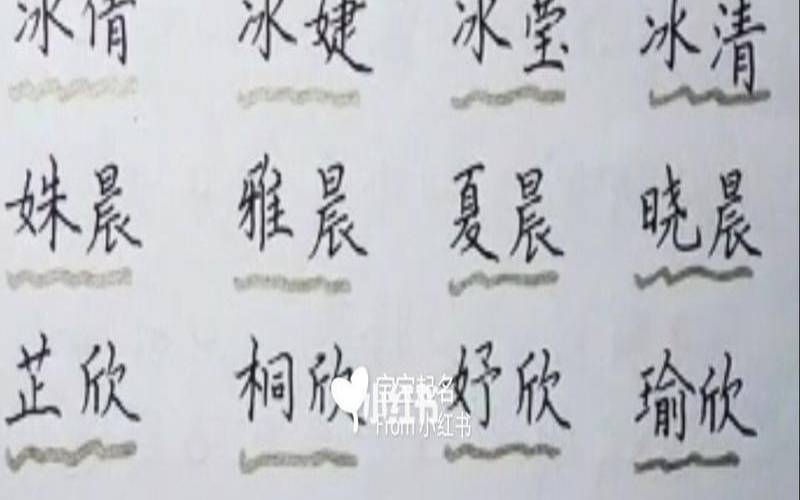 冰倩 冰婕 冰莹 冰清
姝晨 雅晨 夏晨 晓晨
芷欣 桐欣 妤欣 瑜欣
宝宝起名
小红书
From 小红书